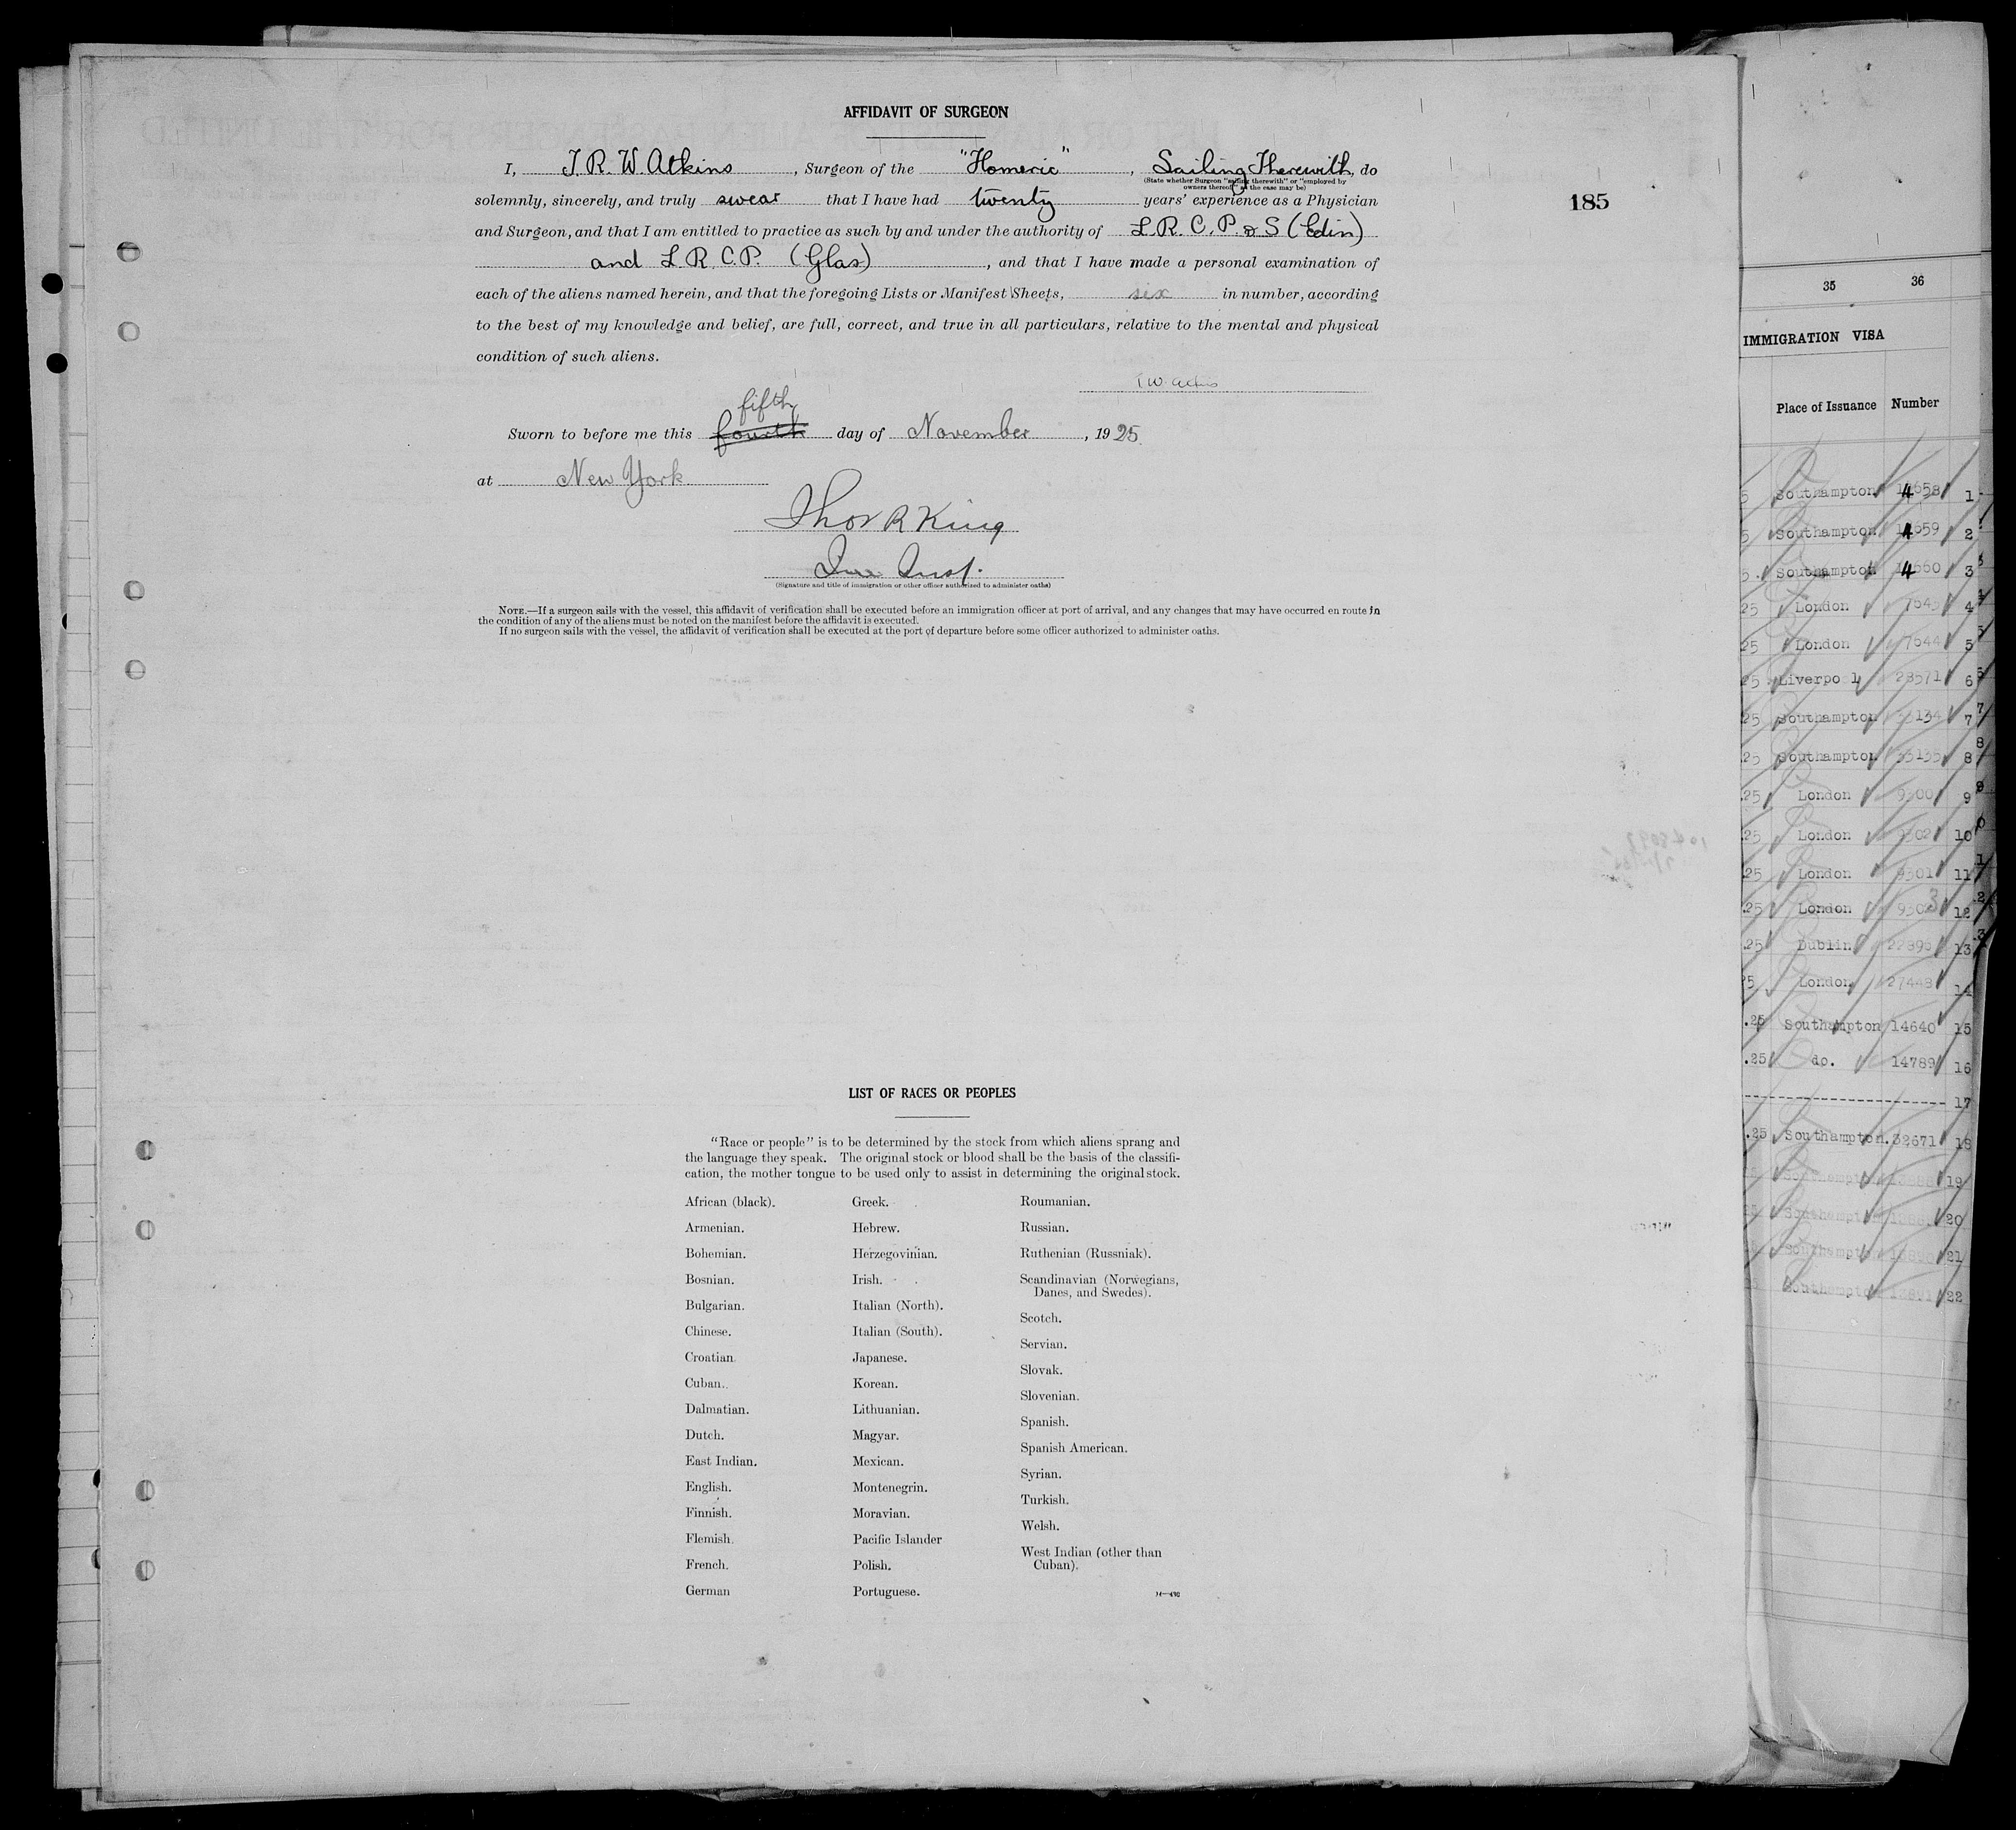 AFFIDAVIT OF SURGEON
I, J. R. W. Atkins, Surgeon of the "Homeric", Sailing Therewith, do
(State whether Surgeon "sailing therewith" or "employed by
owners thereof" as the case may be)
solemnly, sincerely, and truly swear that I have had twenty years' experience as a Physician
185
and Surgeon, and that I am entitled to practice as such by and under the authority of L.R.C.P. & S (Edin)
and L.R.C.P. (Glas), and that I have made a personal examination of
each of the aliens named herein, and that the foregoing Lists or Manifest Sheets, six in number, according
to the best of my knowledge and belief, are full, correct, and true in all particulars, relative to the mental and physical
condition of such aliens.
fifth
Sworn to before me this fourth day of November, 1925
at New York
Thos R King
(Signature and title of immigration or other officer authorized to administer oaths)
NOTE.—If a surgeon sails with the vessel, this affidavit of verification shall be executed before an immigration officer at port of arrival, and any changes that may have occurred en route in
the condition of any of the aliens must be noted on the manifest before the affidavit is executed.
If no surgeon sails with the vessel, the affidavit of verification shall be executed at the port of departure before some officer authorized to administer oaths.
LIST OF RACES OR PEOPLES
"Race or people" is to be determined by the stock from which aliens sprang and
the language they speak. The original stock or blood shall be the basis of the classifi-
cation, the mother tongue to be used only to assist in determining the original stock.
African (black).
Armenian.
Bohemian.
Bosnian.
Bulgarian.
Chinese.
Croatian.
Cuban.
Dalmatian.
Dutch.
East Indian.
English.
Finnish.
Flemish.
French.
German
Greek.
Hebrew.
Herzegovinian.
Irish.
Italian (North).
Italian (South).
Japanese.
Korean.
Lithuanian.
Magyar.
Mexican.
Montenegrin.
Moravian.
Pacific Islander
Polish.
Portuguese.
Roumanian.
Russian.
Ruthenian (Russniak).
Scandinavian (Norwegians,
Danes, and Swedes).
Scotch.
Servian.
Slovak.
Slovenian.
Spanish.
Spanish American.
Syrian.
Turkish.
Welsh.
West Indian (other than
Cuban).
35 36
IMMIGRATION VISA
Place of Issuance Number
Southampton 1
Southampton 2
Southampton 3
London 4
London 5
Liverpo l 28571 6
Southampton 7
Southampton 8
London 9300 9
London 9302 10
London 9301 11
London 9303 12
Dublin 13
London 27448 14
.25 Southampton 14640 15
.25 do. 14789 16
17
.25 Southampton. 32671 18
Southampton 19
Southampton 20
Southampton 21
Southampton 22